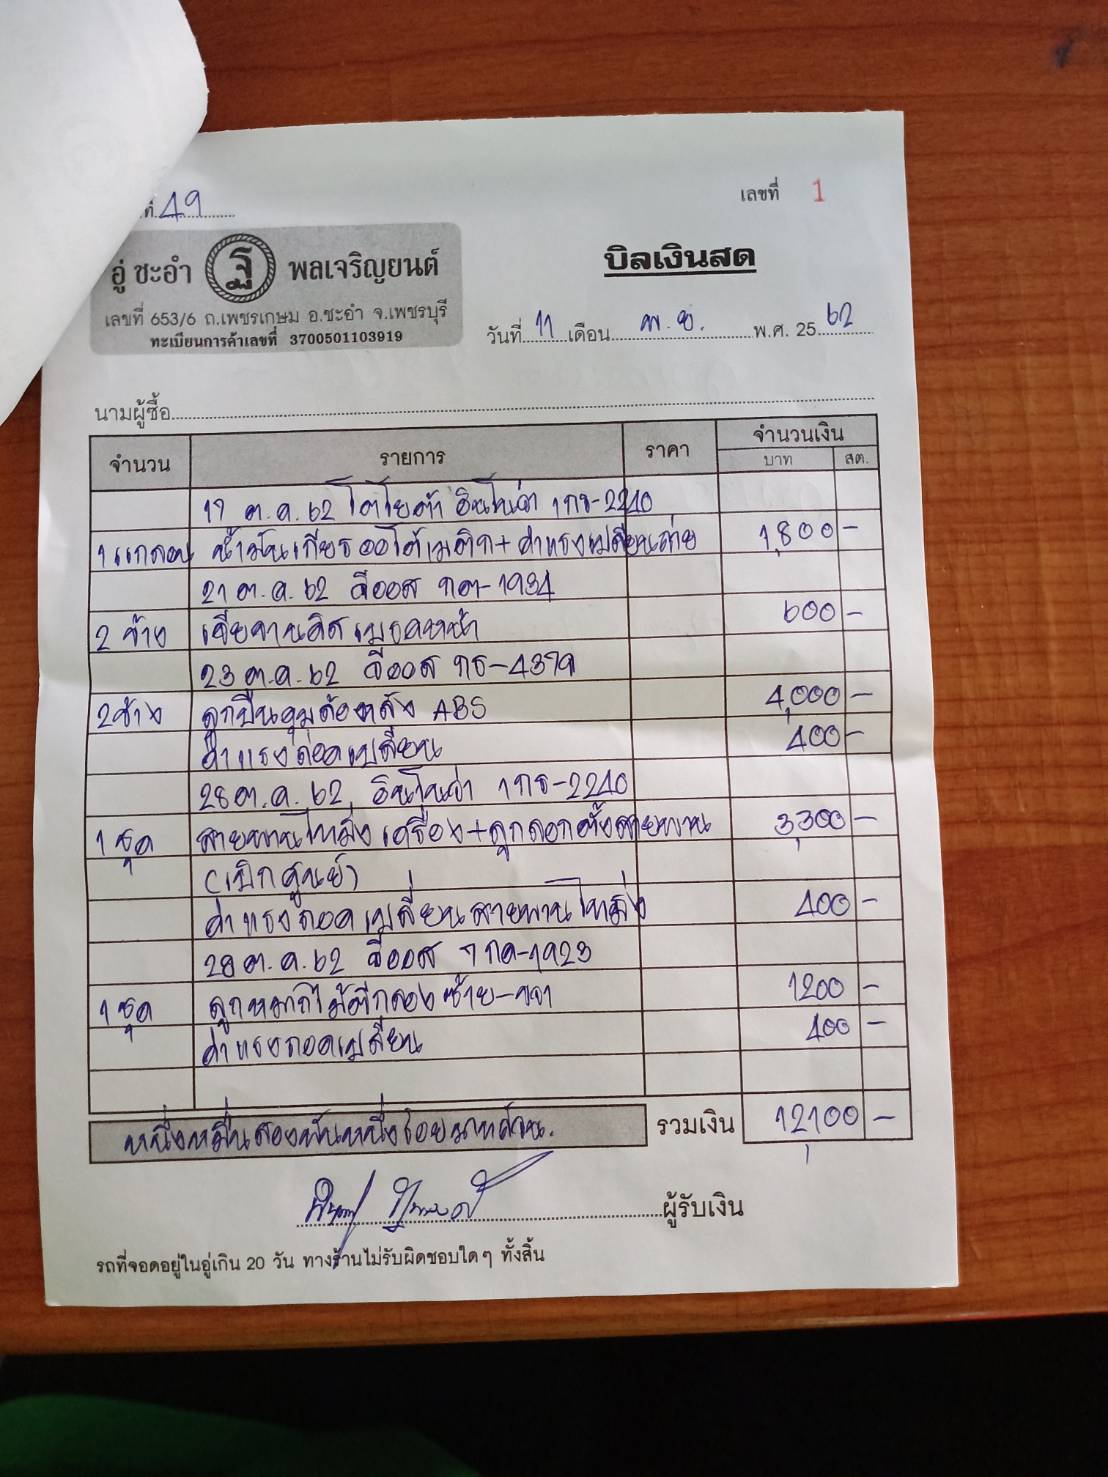 ที่ 49
เลขที่ 1
อู่ ชะอำ ฐ พลเจริญยนต์
บิลเงินสด
เลขที่ 653/6 ถ.เพชรเกษม อ.ชะอำ จ.เพชรบุรี
ทะเบียนการค้าเลขที่ 3700501103919
วันที่ 11 เดือน พ.ย. พ.ศ. 2562
นามผู้ซื้อ
จำนวน รายการ ราคา จำนวนเงิน
บาท สต.
17 ต.ค. 62 โตโยต้า อินโนว่า 1กธ-2240
1 แกลอน น้ำมันเกียรออโต้เมติก+ค่าแรงเปลี่ยนถ่าย 1,800 -
21 ต.ค. 62 วีออส กต-1934
2 ข้าง เจียจานดิสเบรคหน้า 600 -
23 ต.ค. 62 วีออส กธ-4379
2 ข้าง ลูกปืนดุมล้อหลัง ABS 4,000 -
ค่าแรงถอดเปลี่ยน 400 -
28 ต.ค. 62 อินโนว่า 1กธ-2240
1 ชุด สายพานไทม์มิ่งเครื่อง+ลูกลอกตั้งสายพาน 3,300 -
(เบิกศูนย์)
ค่าแรงถอดเปลี่ยนสายพานไทม์มิ่ง 400 -
28 ต.ค. 62 วีออส 1923
1 ชุด ลูกหมากไม้ตีกลองซ้าย-ขวา 1200 -
ค่าแรงถอดเปลี่ยน 400 -
หนึ่งหมื่นสองพันหนึ่งร้อยบาทถ้วน. รวมเงิน 12,100 -
ผู้รับเงิน
รถที่จอดอยู่ในอู่เกิน 20 วัน ทางร้านไม่รับผิดชอบใดๆ ทั้งสิ้น